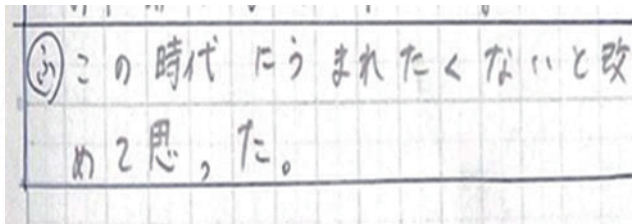 ㋫この時代にうまれたくないと改
めて思った。